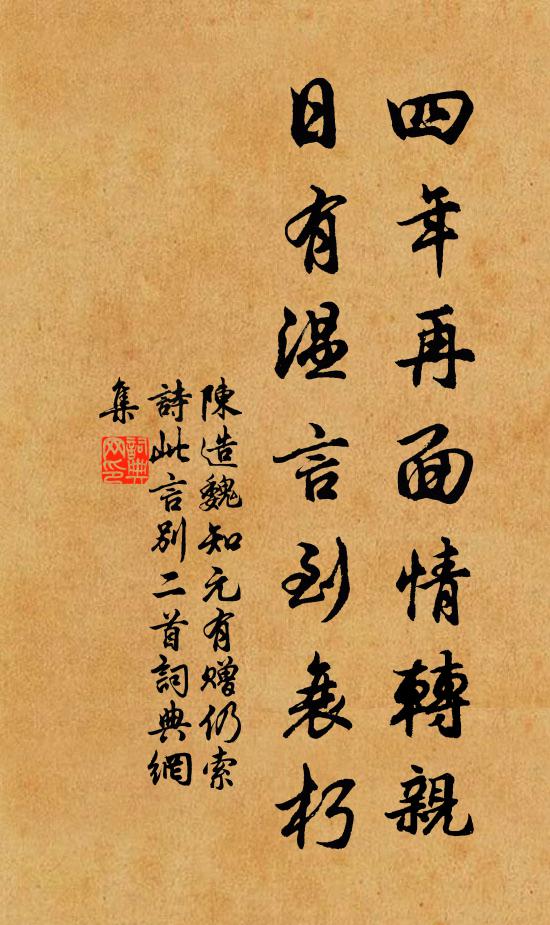 四年再面情轉親
日有溫言到衰朽
陳造魏知元有贈仍索
詩此言別二首詞典網
集
詞典網印